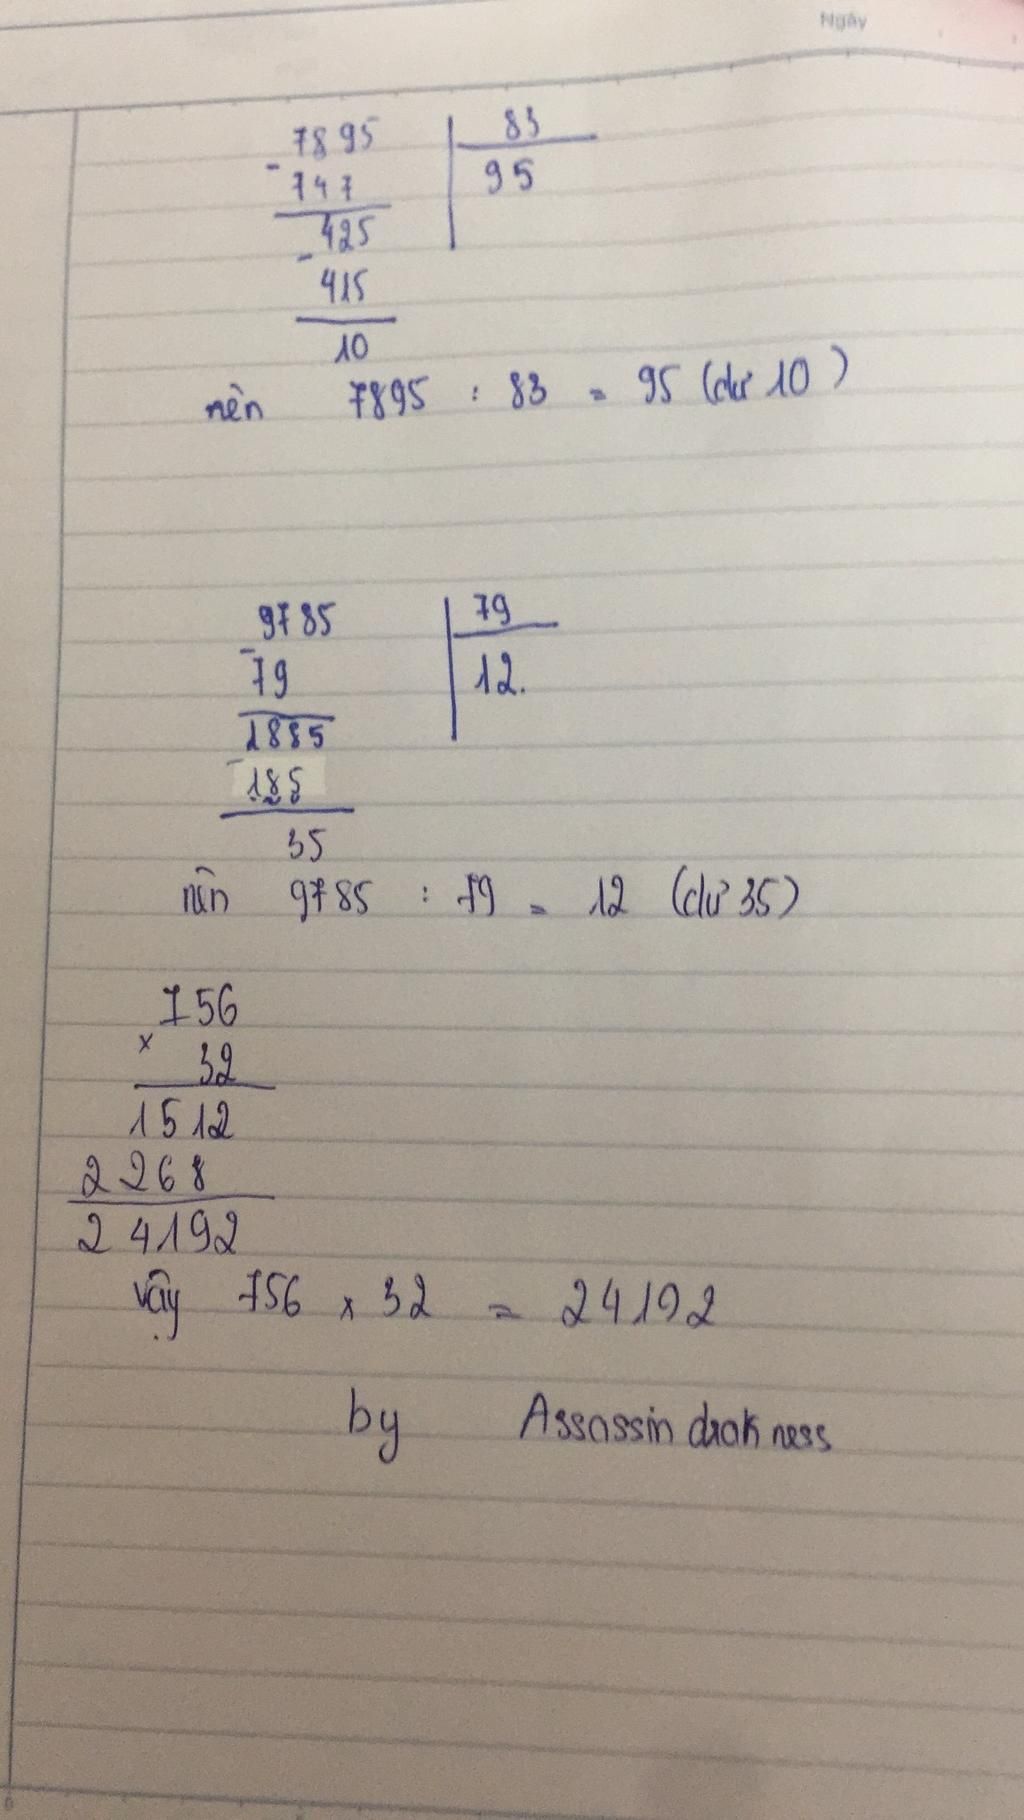 Ngày
7895 83
- 747 95
425
- 415
10
nên 7895 : 83 = 95 (dư 10)
9785 79
- 79 12.
1885
- 185
35
nên 9785 : 79 = 12 (dư 35)
756
x 32
1512
2268
24192
vậy 756 x 32 = 24192
by Assassin drakness